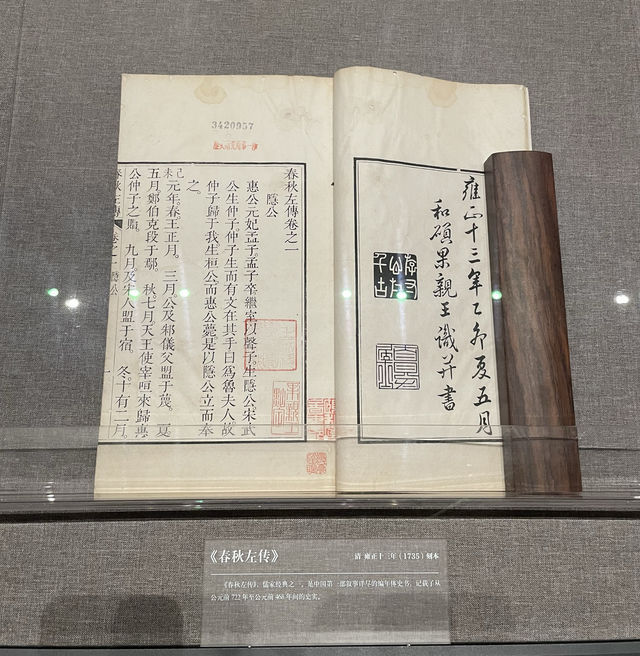 雍正十三年乙卯夏五月
和碩果親王識并書
3420957
春秋左傳卷之一
隱公
惠公元妃孟子孟子卒繼室以聲子生隱公宋武
公生仲子仲子生而有文在其手曰爲魯夫人故
仲子歸于我生桓公而惠公薨是以隱公立而奉
之。
己未元年春王正月。三月公及邾儀父盟于蔑。夏
五月鄭伯克段于鄢。秋七月天王使宰咺來歸惠
公仲子之賵。九月及宋人盟于宿。冬十有二月。
春秋左傳 卷之一 隱公
《春秋左传》
清 雍正十三年（1735）刻本
《春秋左传》，儒家经典之一，是中国第一部叙事详尽的编年体史书，记载了从
公元前722年至公元前468年间的史实。